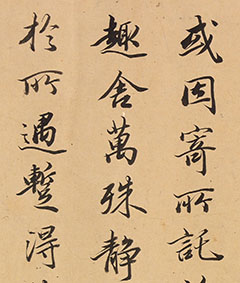 或因寄所託
趣舍萬殊静
於所遇蹔得